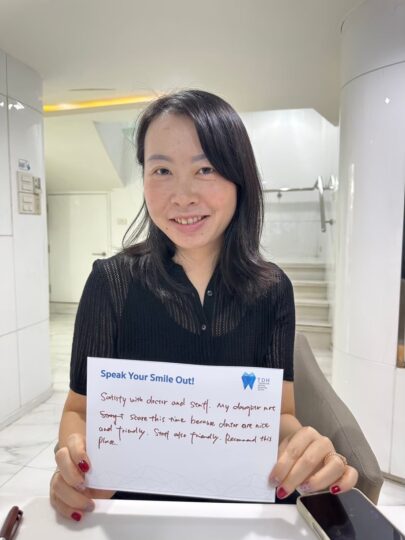 Speak Your Smile Out!
TDH
Satisfy with doctor and staff. My daughter not
scare this time because doctor are nice
and friendly. Staff also friendly. Recommend this
place.